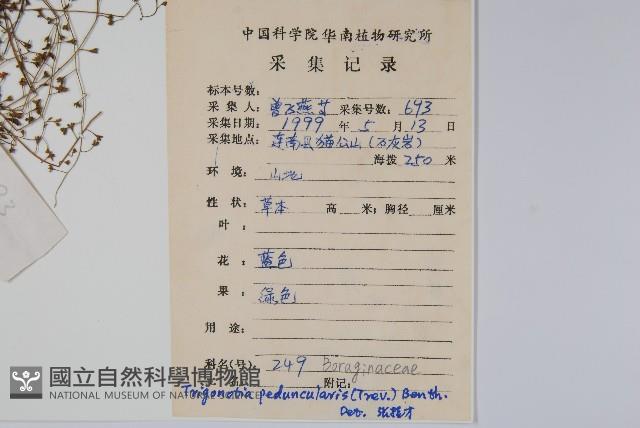 中国科学院华南植物研究所
采集记录
标本号数:
采集人: 曾飞燕 采集号数: 693
采集日期: 1999 年 5 月 13 日
采集地点: 连南县猫公山(石灰岩)
海拨 250 米
环境: 山地
性状: 草本 高 米; 胸径 厘米
叶:
花: 蓝色
果: 绿色
用途:
科名(号) 249 Boraginaceae
附记:
Trigonotia peduncularis (Trev.) Benth.
Det.
國立自然科學博物館
NATIONAL MUSEUM OF NATURAL SCIENCE
93